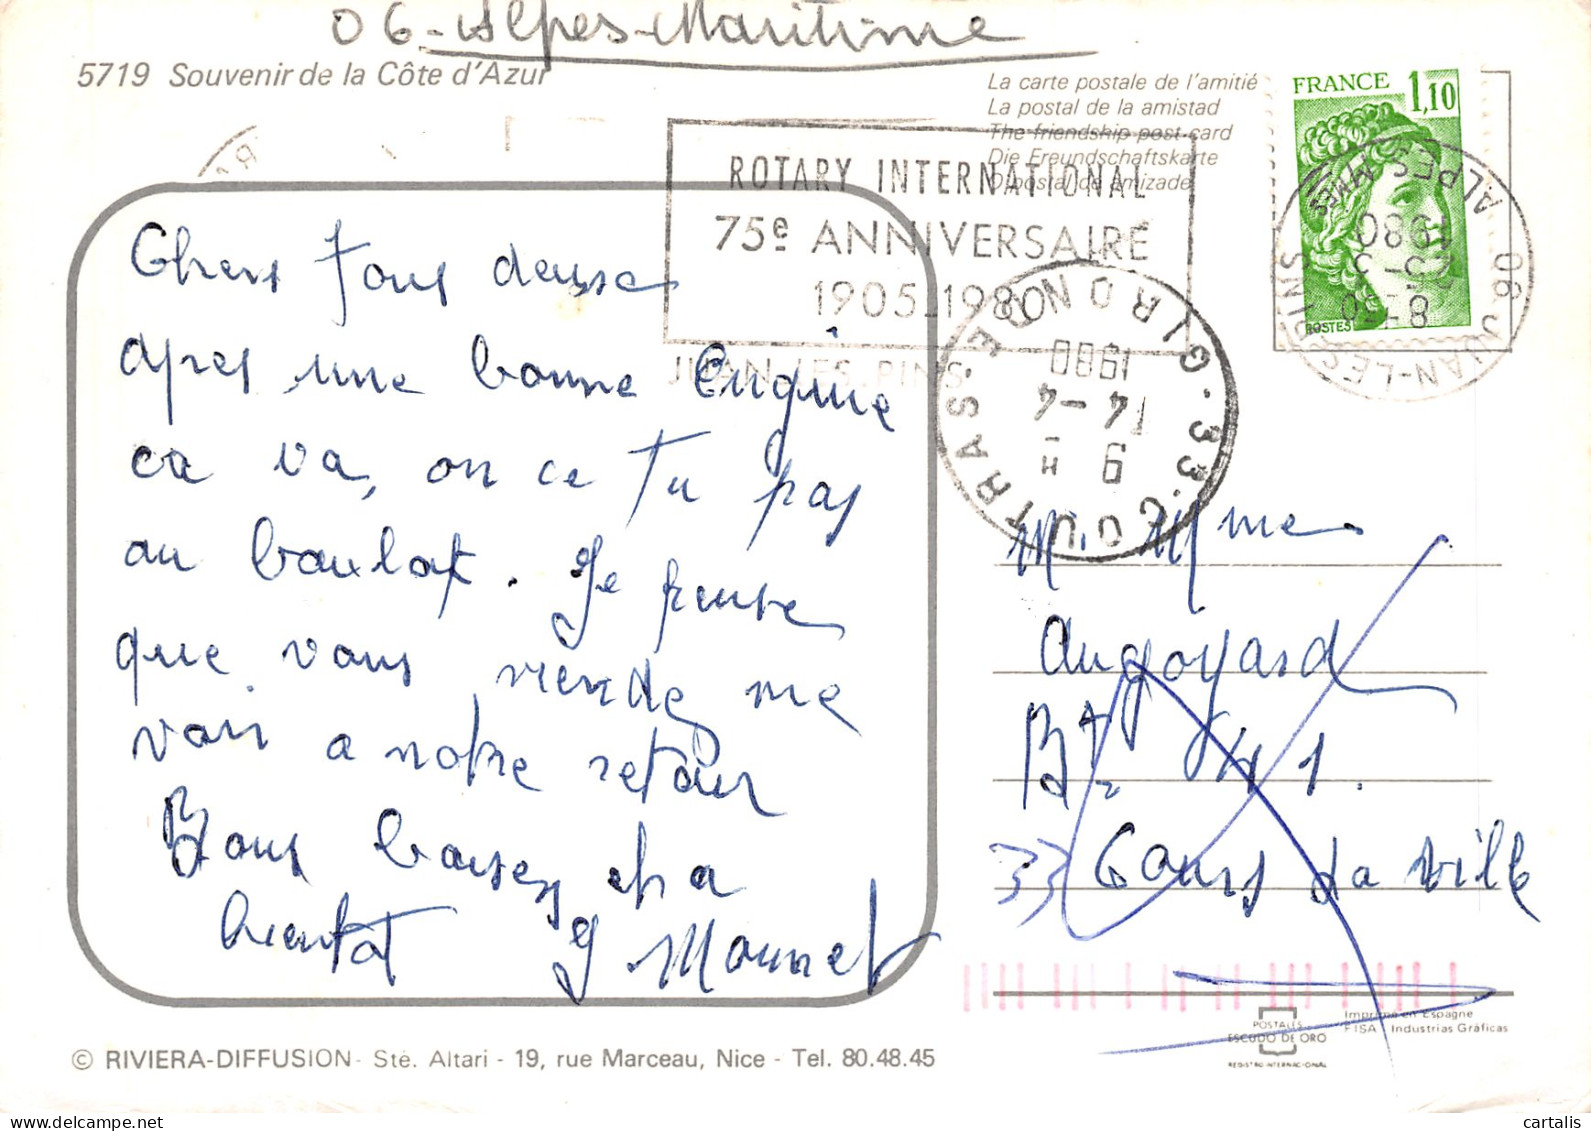 06-Alpes-Maritime
5719 Souvenir de la Côte d'Azur
La carte postale de l'amitié
La postal de la amistad
The friendship post card
Die Freundschaftskarte
O postal de amizade
FRANCE 1,10
POSTES
ROTARY INTERNATIONAL
75e ANNIVERSAIRE
1905_1980
JUAN-LES-PINS
06 JUAN-LES-PINS
ALPES MMES
8-30
25-3
1980
33-COUTRAS-GIRONDE
9 H
14-4
1980
Chers Tous deux
apres une bonne
ca va, on ce Tu pas
au boulot. Je pense
que vous viende me
voir a notre retour
Vous baisez et a
bientot J Monnet
M. Mme
Augoyard
Bt 41.
33 Cours La Ville
© RIVIERA-DIFFUSION - Sté. Altari - 19, rue Marceau, Nice - Tel. 80.48.45
POSTALES
ESCUDO DE ORO
REGISTRO INTERNACIONAL
Imprimé en Espagne
FISA - Industrias Gráficas
cartalis
cartalis.com